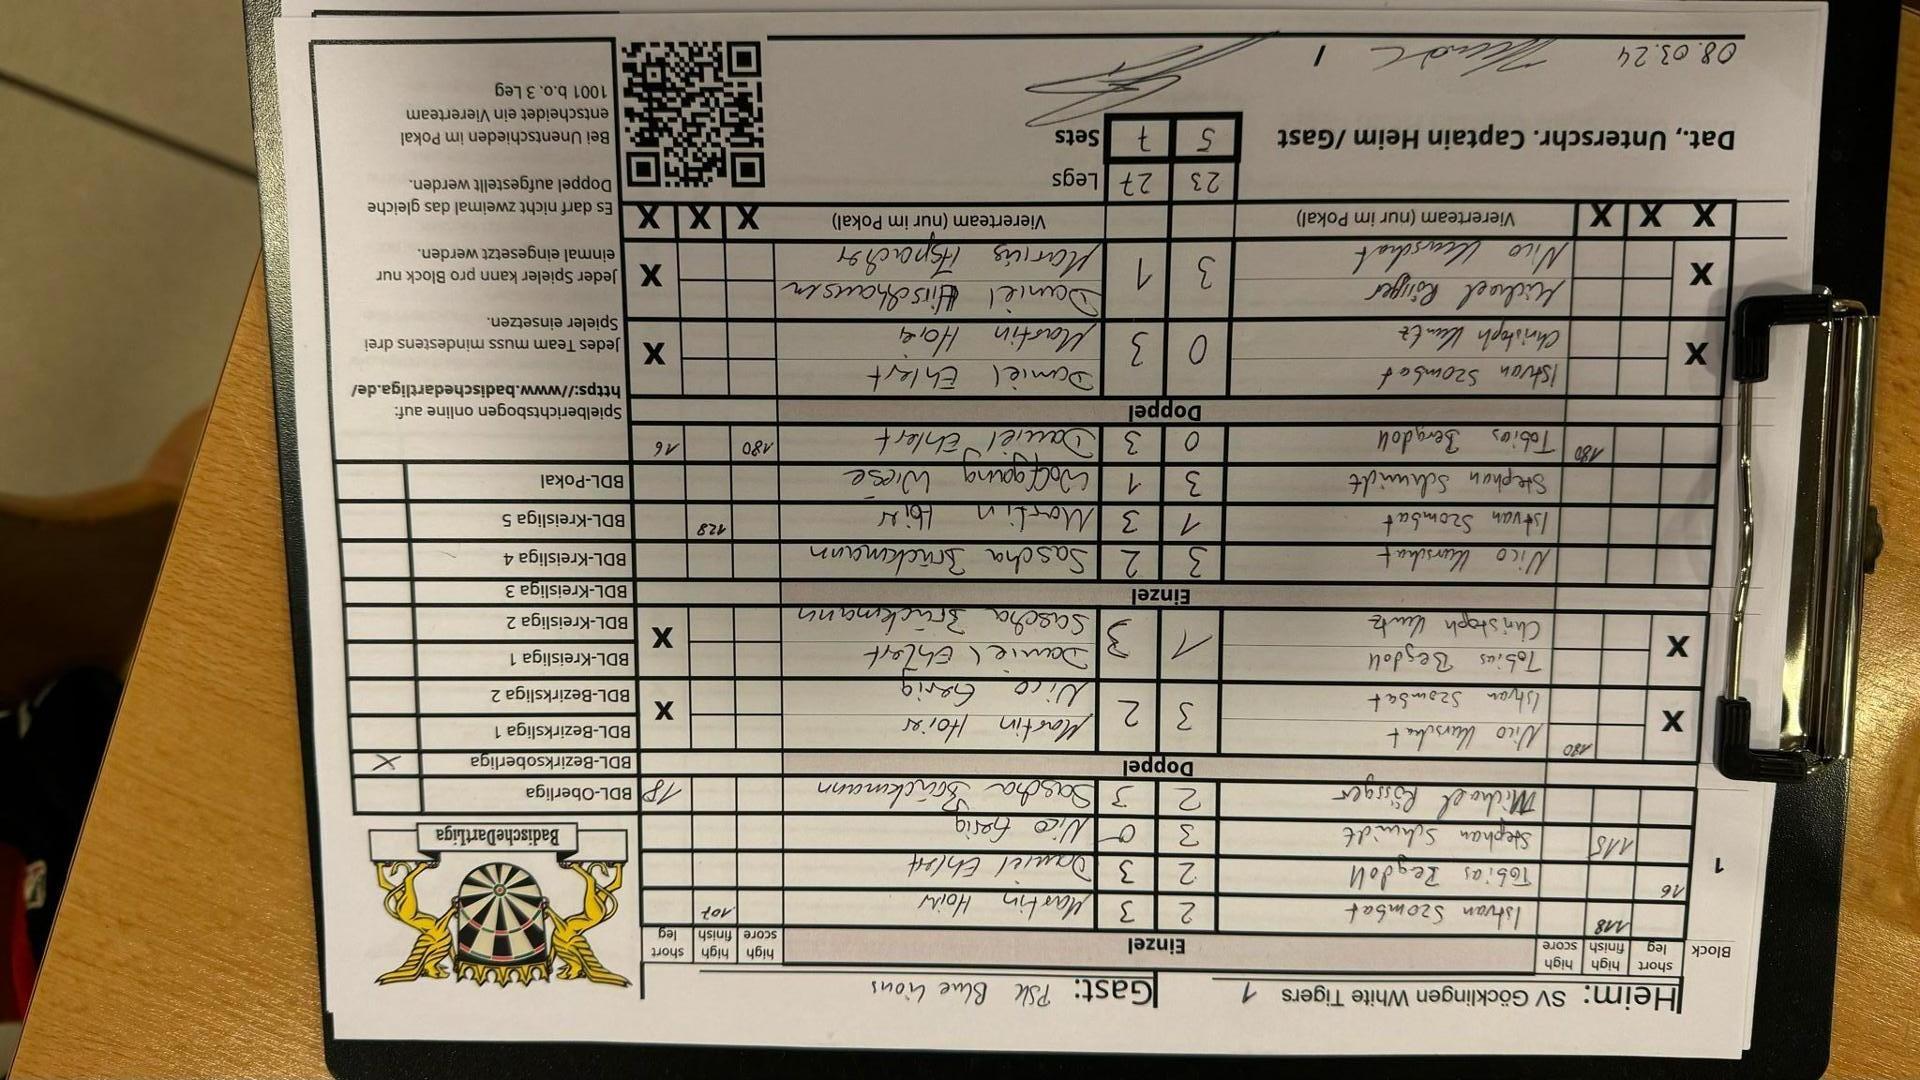 Heim: SV Göcklingen White Tigers 1 Gast: PSK Blue Lions
Block short leg high finish high score Einzel high score high finish short leg
118 Istvan Szombat 2 3 Martin Hoier 107
16 Tobias Bergdoll 2 3 Daniel Ehlert
1 115 Stephan Schmidt 3 0 Nico Gerig
Michael Rössger 2 3 Sascha Brückmann 18
Doppel
X 180 Nico Kurschat 3 2 Martin Hoier X
Istvan Szombat Nico Gerig
X Tobias Bergdoll 1 3 Daniel Ehlert X
Christoph Kuntz Sascha Brückmann
Einzel
Nico Kurschat 3 2 Sascha Brückmann
Istvan Szombat 1 3 Martin Hoier 128
Stephan Schmidt 3 1 Wolfgang Wiese
180 Tobias Bergdoll 0 3 Daniel Ehlert 180 16
Doppel
X Istvan Szombat 0 3 Daniel Ehlert X
Christoph Kuntz Martin Hoier
X Michael Rössger 3 1 Daniel Hirschhausen X
Nico Kurschat Marius
X X X Viererteam (nur im Pokal) Viererteam (nur im Pokal) X X X
23 27 Legs
Dat., Unterschr. Captain Heim /Gast 5 7 Sets
08.03.24
BadischeDartLiga
BDL-Oberliga
BDL-Bezirksoberliga X
BDL-Bezirksliga 1
BDL-Bezirksliga 2
BDL-Kreisliga 1
BDL-Kreisliga 2
BDL-Kreisliga 3
BDL-Kreisliga 4
BDL-Kreisliga 5
BDL-Pokal
Spielberichtsbogen online auf:
https://www.badischedartliga.de/
Jedes Team muss mindestens drei
Spieler einsetzen.
Jeder Spieler kann pro Block nur
einmal eingesetzt werden.
Es darf nicht zweimal das gleiche
Doppel aufgestellt werden.
Bei Unentschieden im Pokal
entscheidet ein Viererteam
1001 b.o. 3 Leg